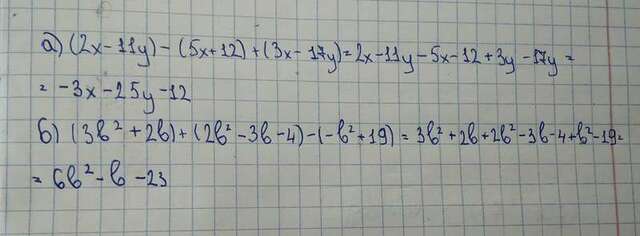 а) (2x-11y) - (5x+12) + (3x-17y) = 2x-11y-5x-12+3y-17y =
= -3x-25y-12
б) (3b² + 2b) + (2b² - 3b - 4) - (-b² + 19) = 3b² + 2b + 2b² - 3b - 4 + b² - 19 =
= 6b² - b - 23